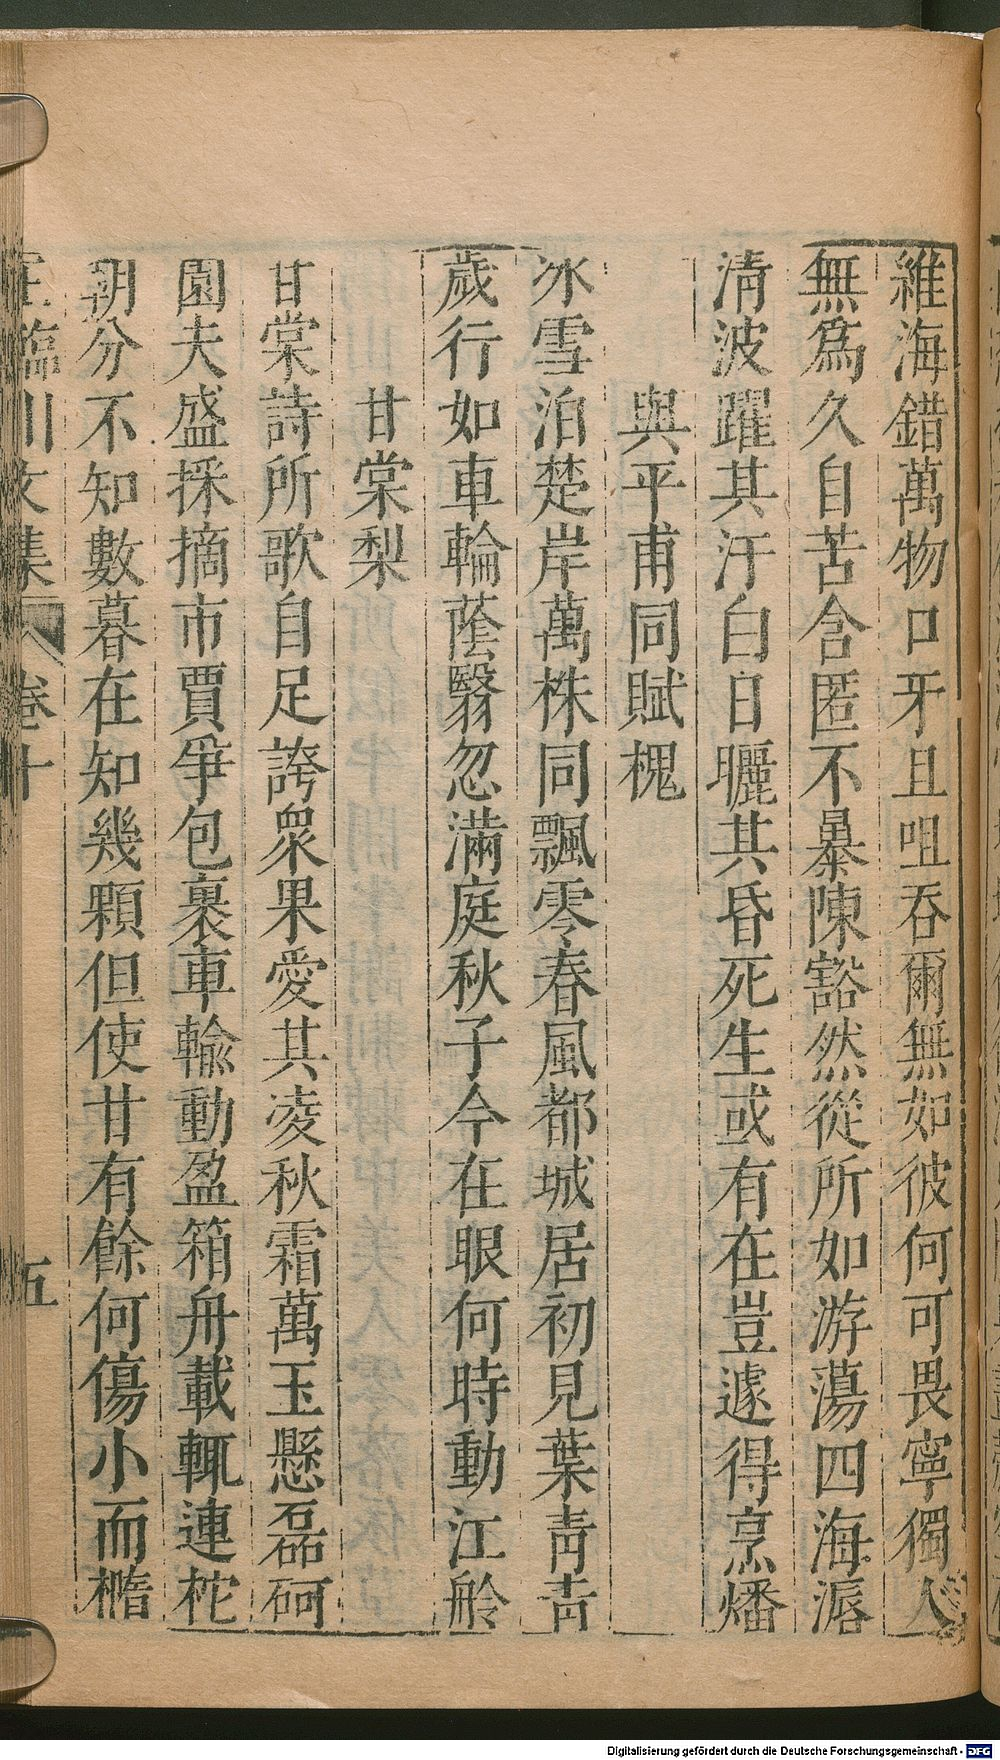 維海錯萬物口牙且咀吞爾無如彼何可畏寧獨人
無爲久自苦含匿不暴陳豁然從所如游蕩四海漘
清波躍其汗白日曬其昏死生或有在豈遽得烹燔
與平甫同賦槐
冰雪泊楚岸萬株同飄零春風都城居初見葉靑靑
歲行如車輪蔭翳忽滿庭秋子今在眼何時動江舲
甘棠梨
甘棠詩所歌自足誇衆果愛其凌秋霜萬玉懸磊砢
園夫盛採摘市賈爭包裹車輸動盈箱舟載輒連柁
朝分不知數暮在知幾顆但使甘有餘何傷小而橢
王臨川文集 卷十 五
Digitalisierung gefördert durch die Deutsche Forschungsgemeinschaft - DFG